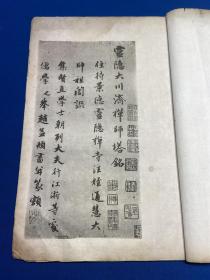 靈隱大川濟禪師塔銘
住持景德靈隱禪寺法姪通慧大
師祖誾譔
集賢直學士朝列大夫行江浙等處
儒學提舉趙孟頫書并篆額